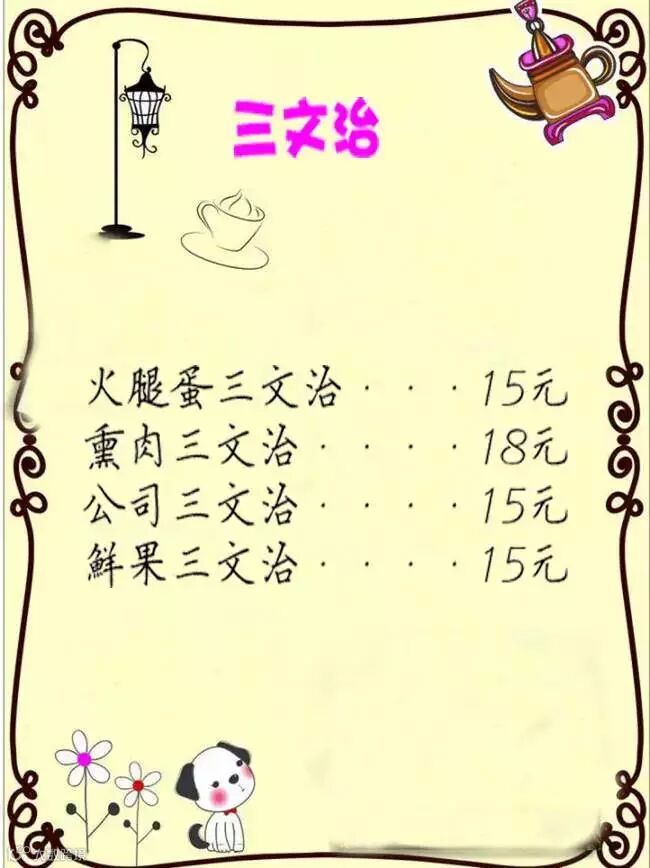 三文治
火腿蛋三文治····15元
熏肉三文治····18元
公司三文治····15元
鮮果三文治····15元